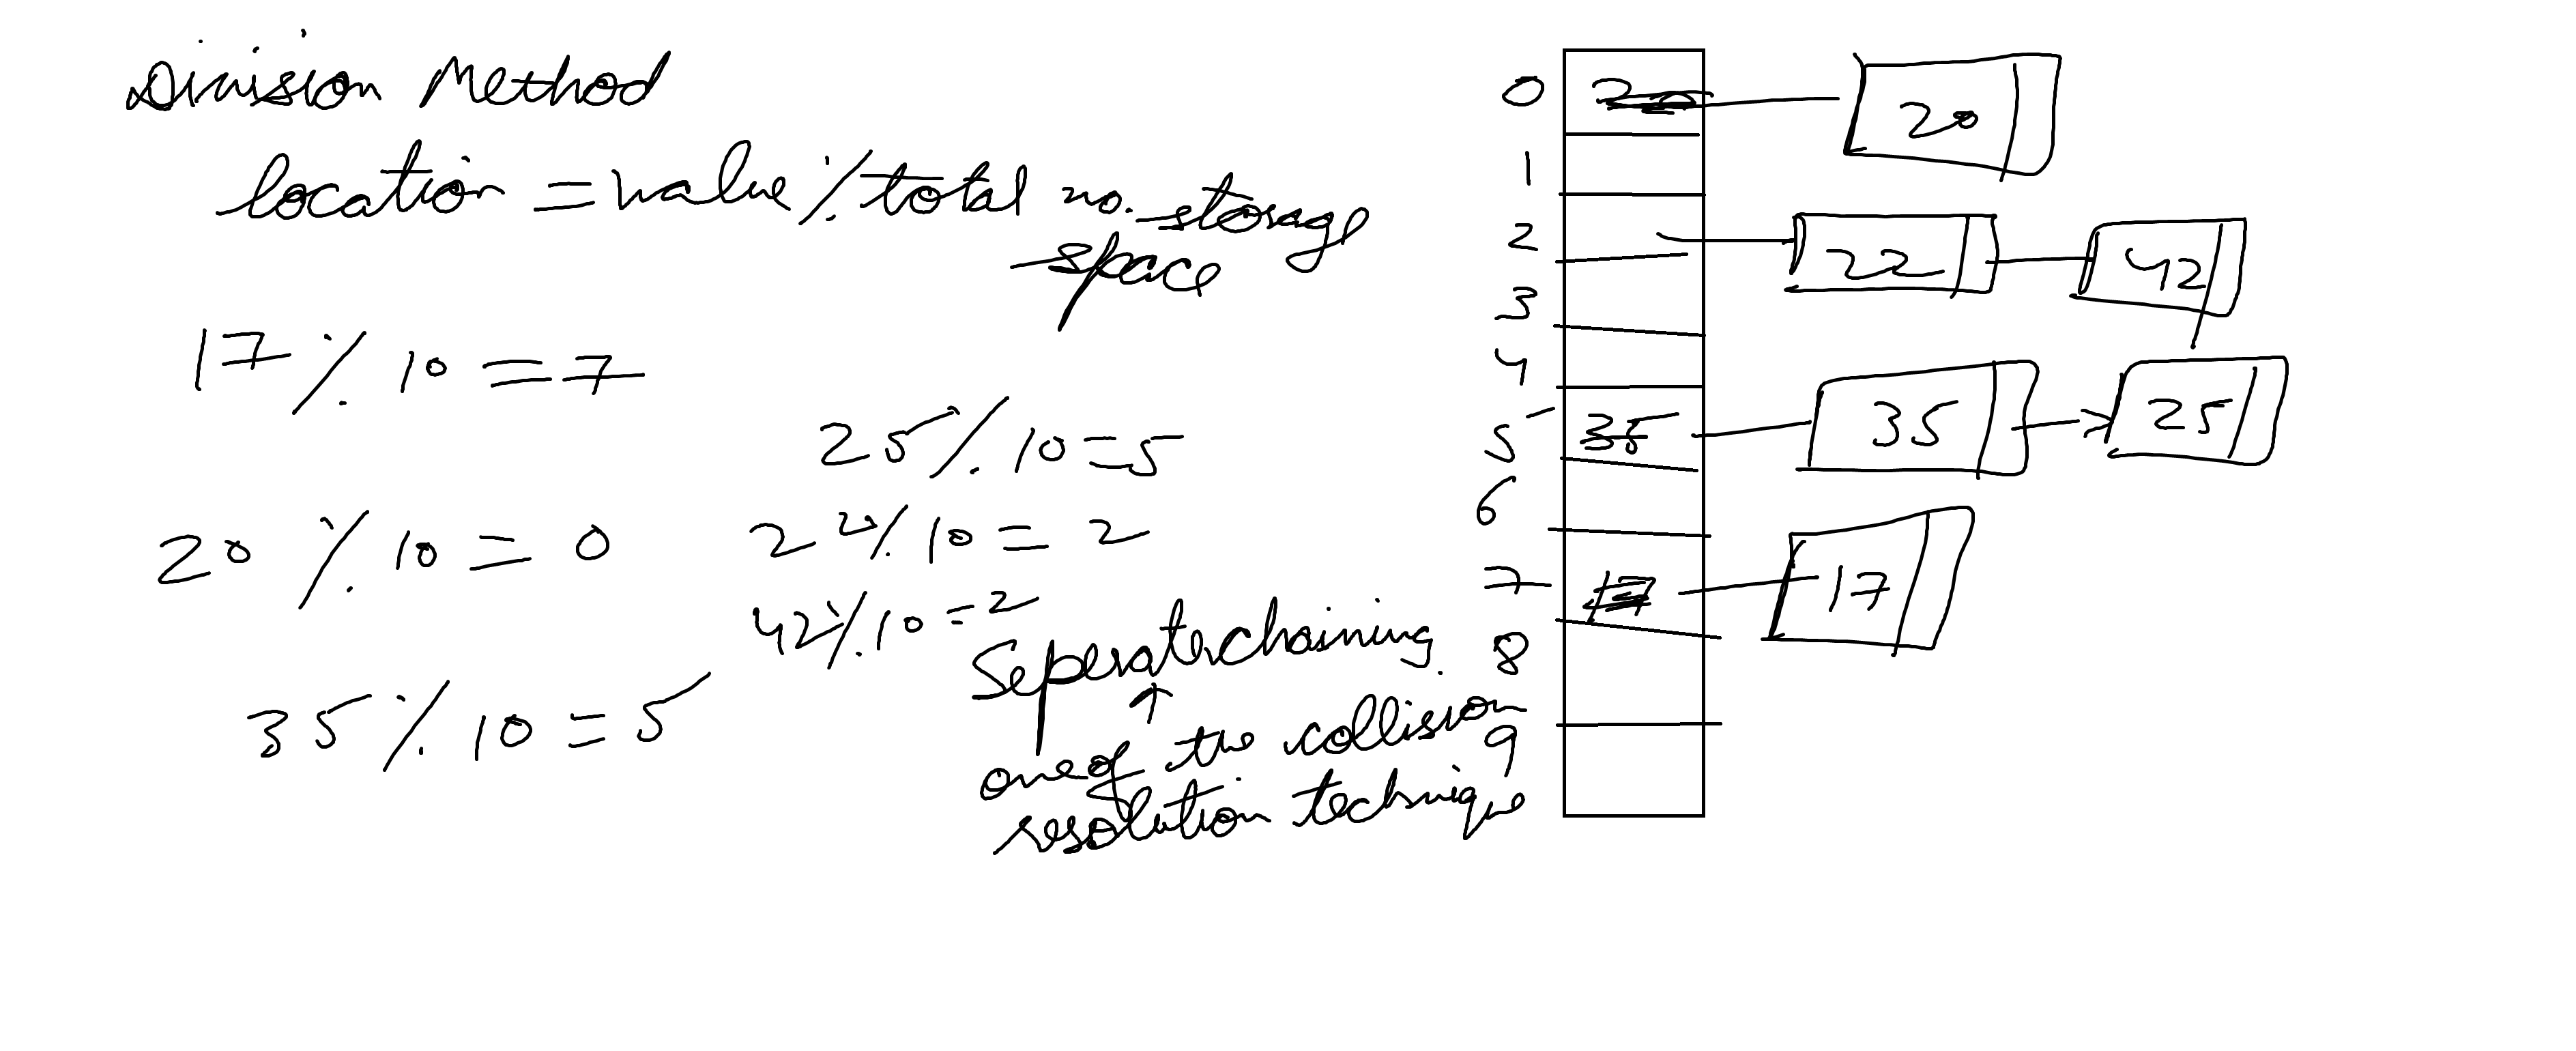 Division Method
location = value % total no. storage
space
17 % 10 = 7
25 % 10 = 5
20 % 10 = 0
22 % 10 = 2
42 % 10 = 2
35 % 10 = 5
Seperate chaining.
↑
one of the collision
resolution technique
0 20 20
1
2 22 42
3
4
5 35 35 25
6
7 17 17
8
9